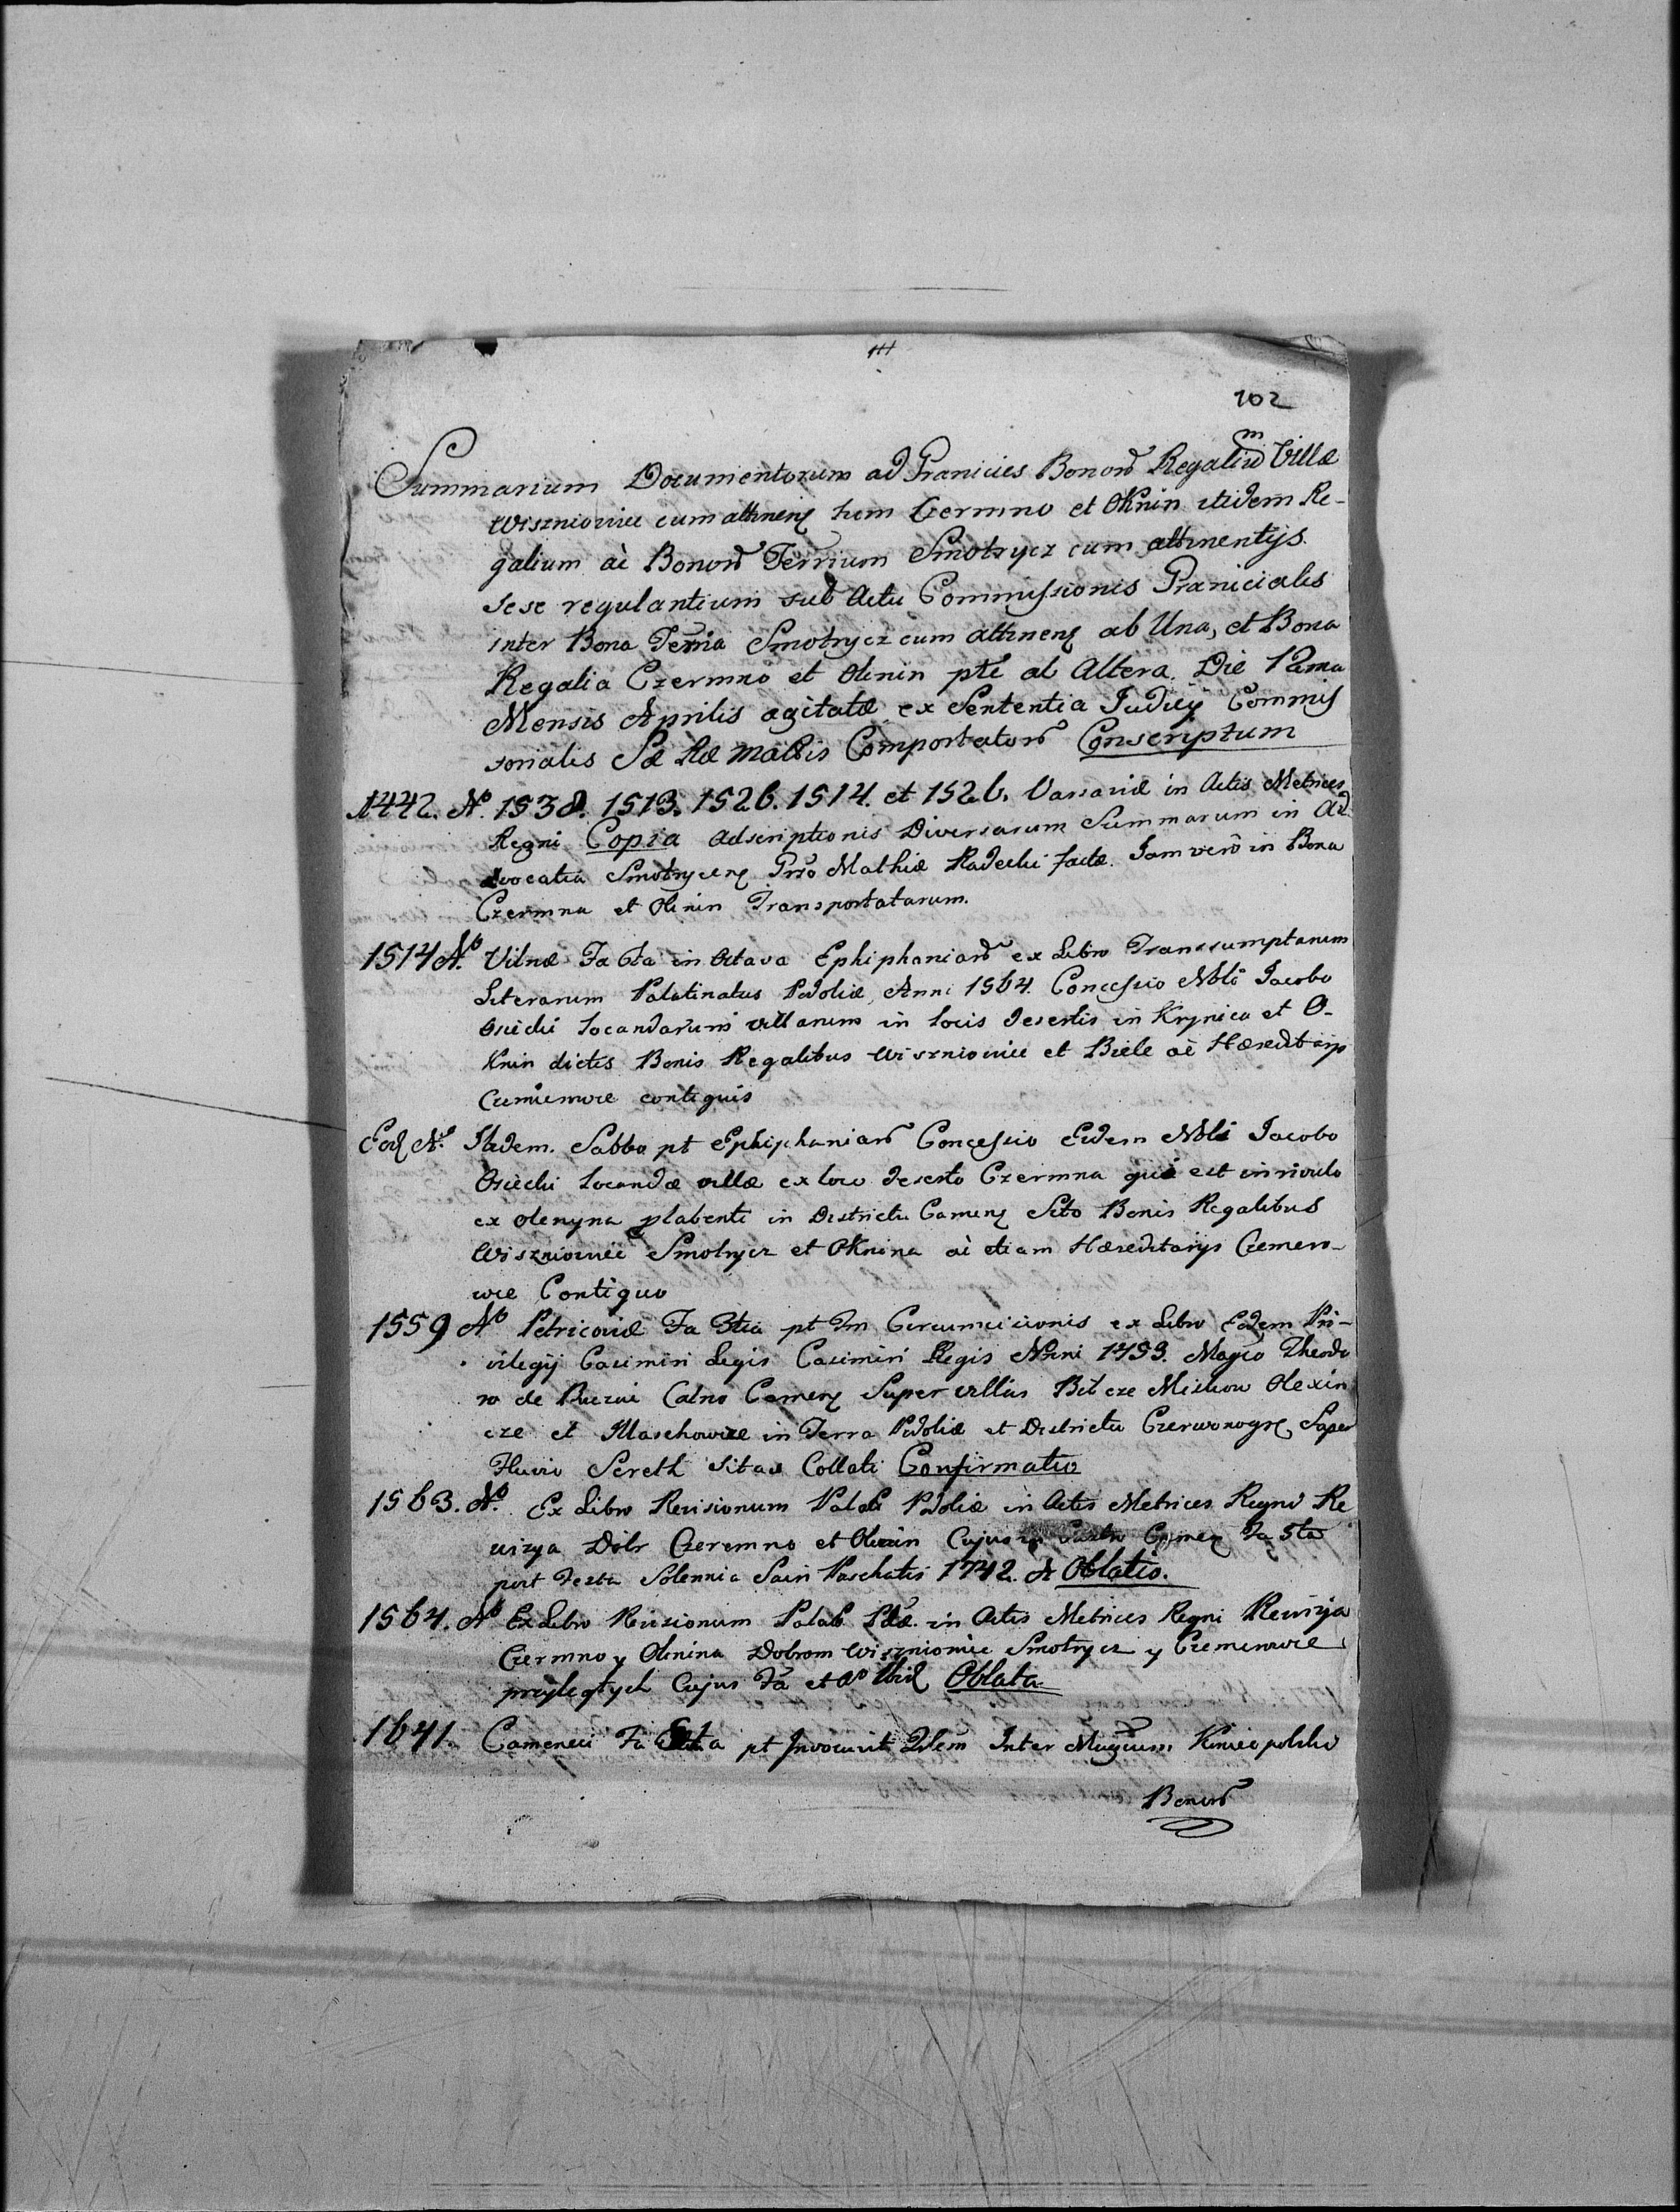 102
Summarium Documentorum ad Granicies Bonorũ Regaliũm Villæ
Wiszniowiec cum attinen tum Czermno et Oknin itidem Re-
galium ac Bonorũ Terrium Smotrycz cum attinentÿs
sese regulantium sub Actu Commissionis Granicialis
inter Bona Terria Smotrycz cum attinen ab Una, et Bona
Regalia Czermno et Olenin pte ab Altera. Die 12ma
Mensis Aprilis agitatæ ex Sententia Judicÿ Commis
sorialis Comportatorũ Conscriptum
1442. Aº. 1538. 1513. 1526. 1514. et 1526. Varsaviæ in Actis Metrices
Regni Copia adscriptionis Diversarum Summarum in Ad
vocatia Smotrycen Gnro Mathiæ Radecki factæ. Jam vero in Bona
Czermna et Olinin Transportatarum.
1514 Aº. Vilnæ Fa 6ta in Octava Ephiphaniarũ ex Libro Transsumptarum
Literarum Palatinatus Podoliæ, Anni 1564. Concessio Nbli Jacobo
Osiecki locandarum villarum in locis desertis in Krynica et O-
knin dictis Bonis Regalibus Wiszniowiec et Biele ac Hæreditarÿs
contiguis
Eod Aº. Ibidem. Sabbo pt Ephiphaniarũ Concessio Eidem Nbli Jacobo
Osiecki locandæ villæ ex loco deserto Czermna qui est in rivulo
ex Olenyna plabenti in Districtu Camen Sito Bonis Regalibus
Wiszniowiec Smotrycz et Oknina ac etiam Hæreditarÿs Czemero-
wce Contiguo
1559 Aº Petricoviæ Fa 3tia pt Fm Circumcisionis ex Libro Eodem Pri-
vilegÿ Casimiri Legis Casimiri Regis Anni 1453. Magco Theodo
ro de Buczac Cstno Camen Super villas Bilcze Milkow Olexin
cze et Maschowce in Terra Podoliæ et Districtu Czerwonogr Super
Fluvio Sereth Sitas Collati Confirmatio
1563. Aº. Ex Libro Revisionum Palat Podoliæ in Actis Metrices Regni Re
wizya Dobr Czeremno et Olenin Cujus in Castro Camen Fa 5ta
post Festa Solennia Sacri Paschatis 1742. A Oblatio.
1564. Aº Ex Libro Revisionum Palat Pdæ. in Actis Metrices Regni Rewizja
Czermno y Olenina Dobrom Wiszniowiec Smotrycz y Czemerowce
przyległych Cujus Fa et Aº Ibid Oblata
1641. Cameneci Fa pt Invocavit Inter Kiniecpolski
Bonorũ